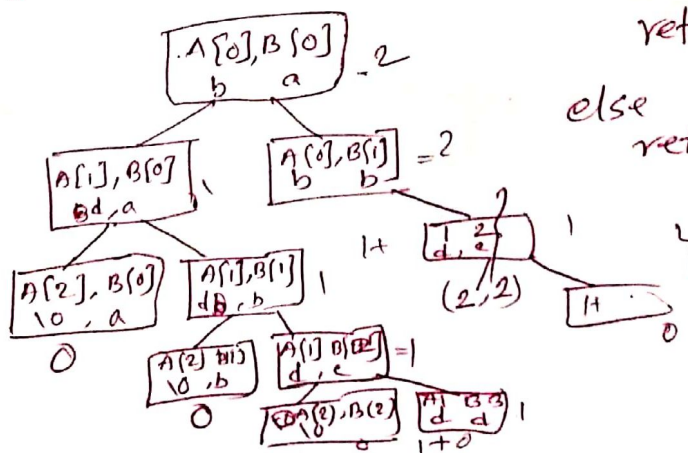 ret
A[0], B[0]
b a
- 2
else
ret
A[1], B[0]
d, a
1
A[0], B[1]
b b
= 2
1+
1 2
d, c
1
(2, 2)
A[2], B[0]
\0 , a
0
A[1], B[1]
d , b
1
1+
0
A[2]
\0 , b
0
A[1] B[2]
d , c
=1
A(2), B(2)
\0
0
A1 B3
d d
1
1+0